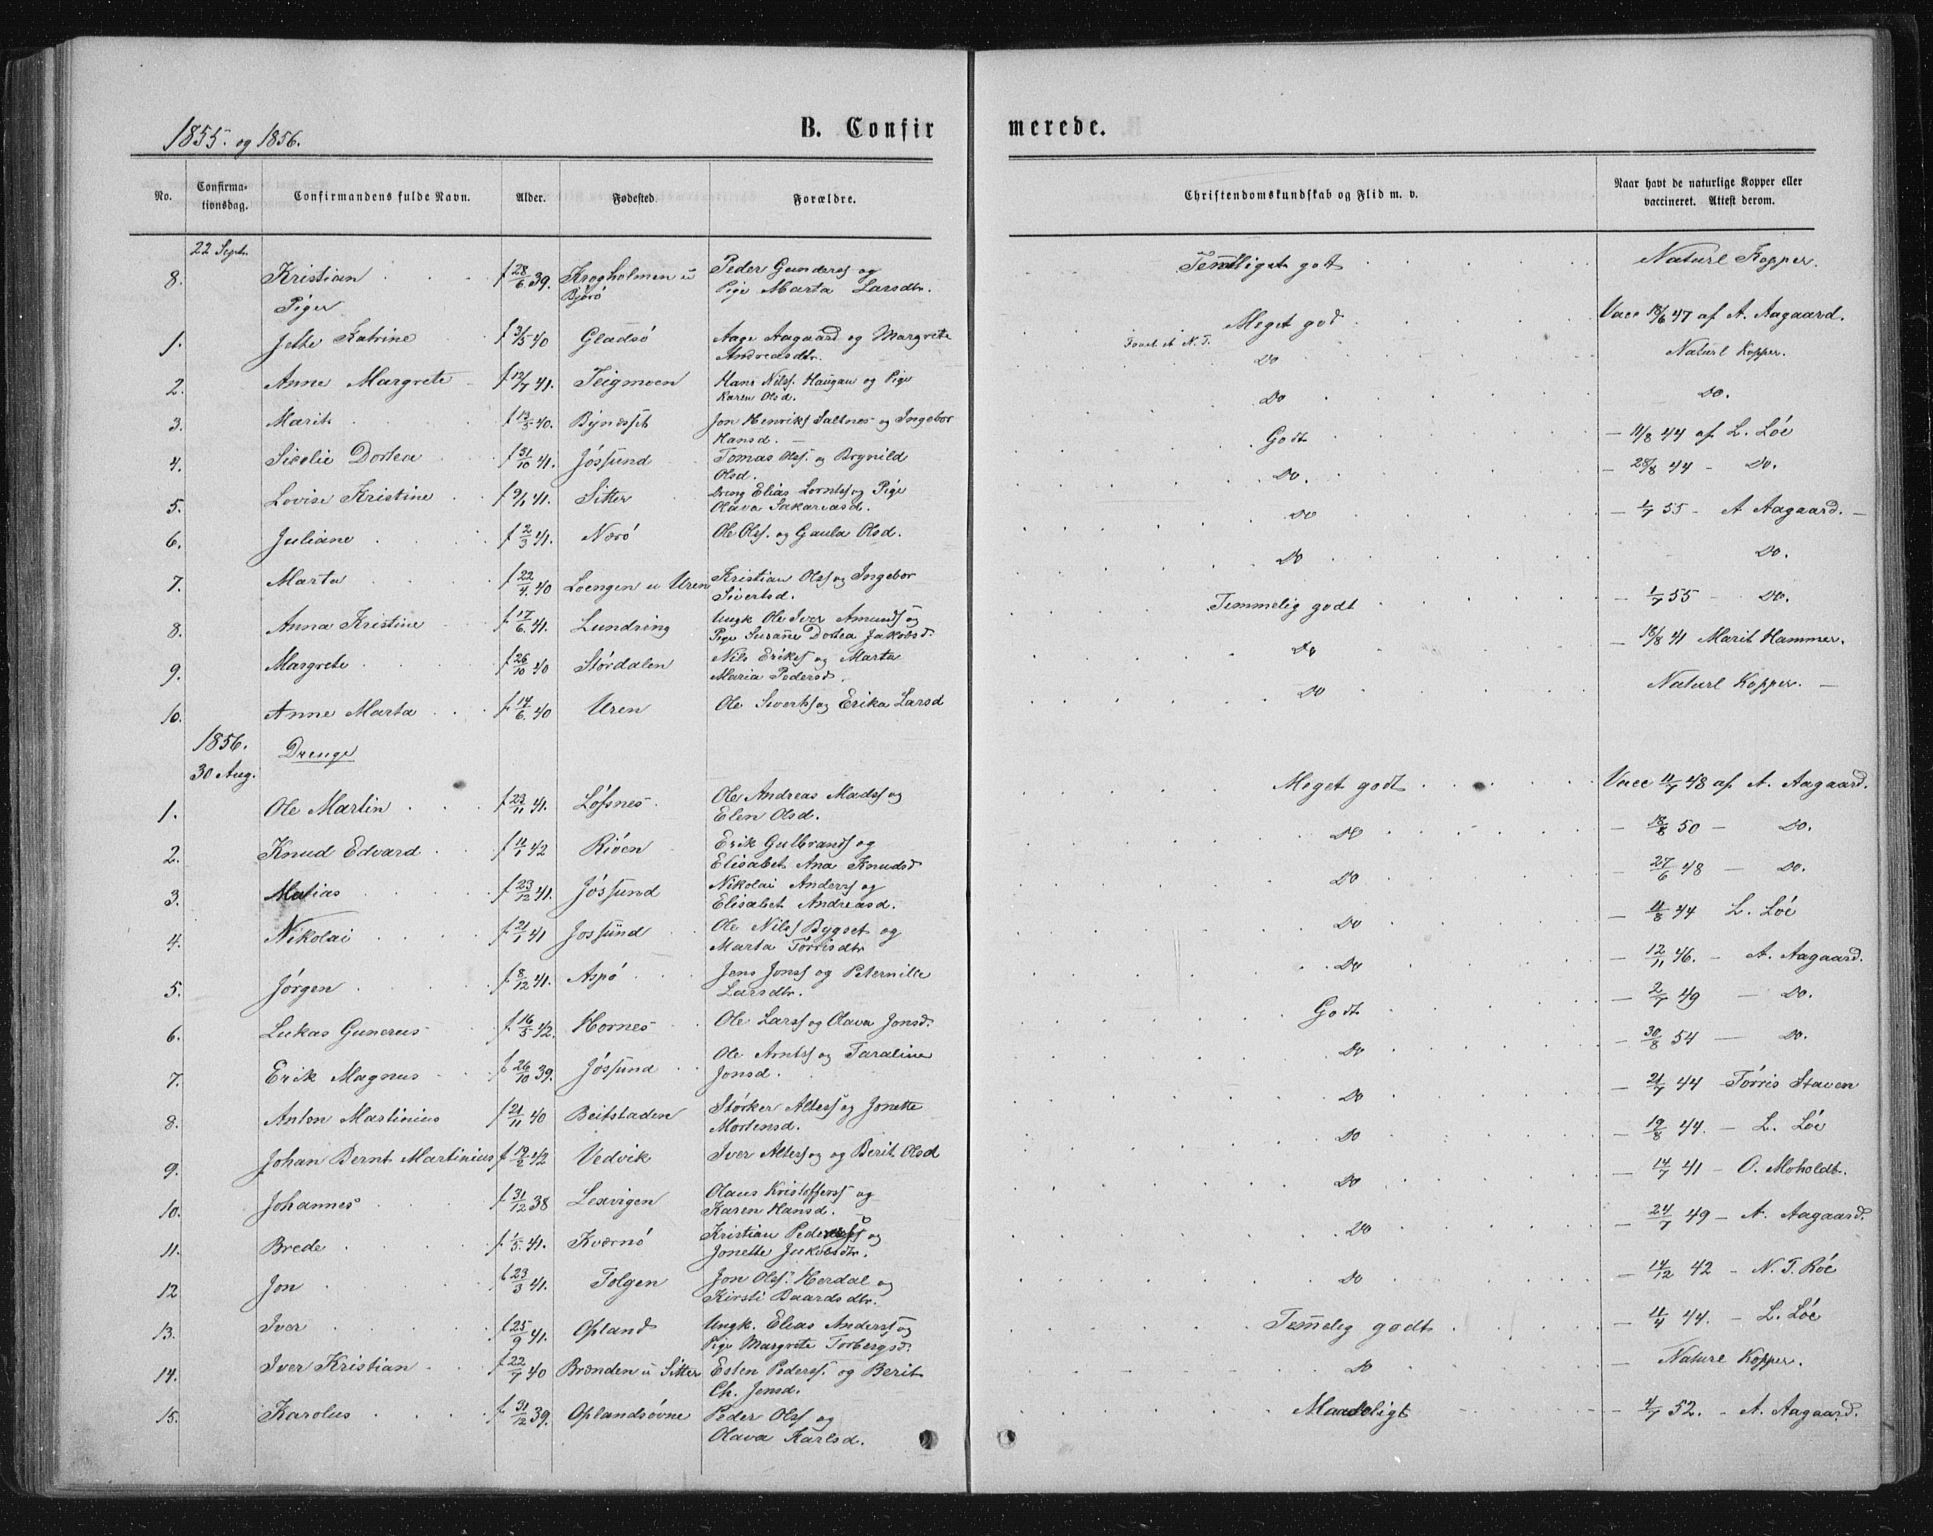 1855. og 1856.
B. Confirmerede.
No. Confirmationsdag. Confirmandens fulde Navn. Alder. Fødested. Forældre. Christendomskundskab og Flid m. v. Naar havt de naturlige Kopper eller vaccineret. Attest derom.
22 Septr.
8. Kristian f 28/6 39. Krogholmen u Bjørø Peder Gunders og Pige Marta Larsdtr. godt Naturl Kopper.
Piger
1. Jette Katrine f 3/5 40 Gladsø Aage Aagaard og Margrete Andreasdtr. Meget god Vacc 18/6 47 af A. Aagaard.
2. Anne Margrete f 12/7 41. Teigmoen Hans Nilss. Haugan og Pige Karen Olsd. Do Naturl Kopper.
3. Marit f 13/3 40. Byneset Jon Henriks Saltnes og Ingebor Hansd. Do Do.
4. Sicelie Dortea f 31/10 41. Jøssund Tomas Olss. og Brynild Olsd. Godt 11/8 44 af L. Løe
5. Lovise Kristine f 9/1 41. Sitter Dreng Elias Lornts og Pige Olava Sakariasd. Do. 28/8 44 - Do.
6. Juliane f 2/3 41. Nærø Ole Olss. og Gaula Olsd. Do 1/7 55 - A Aagaard.
7. Marta f 22/4 40 Loengen u Uren Kristian Olss og Ingebor Sivertsd. Do Do.
8. Anna Kristine f 17/6 41. Lundring Ungk Ole Iver Amunds og Pige Susanne Dortea Jakobsd. Temmelig godt 1/7 55 - Do.
9. Margrete f 26/10 40 Størdalen Nils Eriks og Marta Maria Pedersd. Do 18/8 41 Marit Hammer.
10. Anne Marta f 14/6 40 Uren Ole Siverts og Erika Larsd Do Naturl Kopper.
1856. Drenge
30 Aug.
1. Ole Martin f 23/11 41. Løfsnes Ole Andreas Mads og Elen Olsd. Meget godt Vacc 11/7 48 af A. Aagaard.
2. Knud Edvard f 11/1 42 Riøen Erik Gulbrands og Elisabet Ana Knudsd Do 18/8 50 - Do.
3. Matias f 23/12 41. Jøssund Nikolai Anders og Elisabet Andreasd. Do 27/6 48 - Do.
4. Nikolai f 21/1 41 Jossund Ole Nils Bygset og Marta Torrisdtr Do 11/8 44 L. Løe
5. Jørgen f 8/12 41. Aspø Jens Jonss og Peternille Larsdtr. Do 12/11 46. - A. Aagaard.
6. Lukas Gunerus f 16/5 42. Hornes Ole Larss og Olava Jonsd. Godt 2/7 49 - Do.
7. Erik Magnus f 26/10 39. Jøssund Ole Arnts og Taraline Jonsd. Do 30/8 54 - Do.
8. Anton Martinius f 21/11 40 Beitstaden Størker Alters og Jonette Mortensd. Do 21/7 44 - Tørris Staven
9. Johan Bernt Martinius f 19/2 42 Vedvik Iver Alters og og Berit Olsd Do 19/8 44. - L. Løe
10. Johannes f 31/12 38 Lexvigen Olaus Kristoffers og Karen Hansd. Do 14/7 41 - O. Moholdt.
11. Brede f 1/5. 41. Kværnø Kristian Peders og Jonette Jakobsdtr. Do 24/7 49 - A. Aagaard.
12 Jon f 23/3 41. Tolgen Jon Olss. Herdal og Kirsti Baardsdtr. Do 14/12 42 - N. T. Røe
13. Iver f 25/9 41. Opland Ungk. Elias Anders og Pige Margrete Torbergsd. Temelig godt 11/4 44. - L. Løe
14. Iver Kristian f 22/7 40 Brænden u Sitter Esten Peders. og Berit Ch. Jensd. Do Naturl Kopper.
15. Karolus f 31/12 39. Oplandsøvne Peder Olss og Olava Karlsd. Maadeligt 4/7 52. - A. Aagaard.